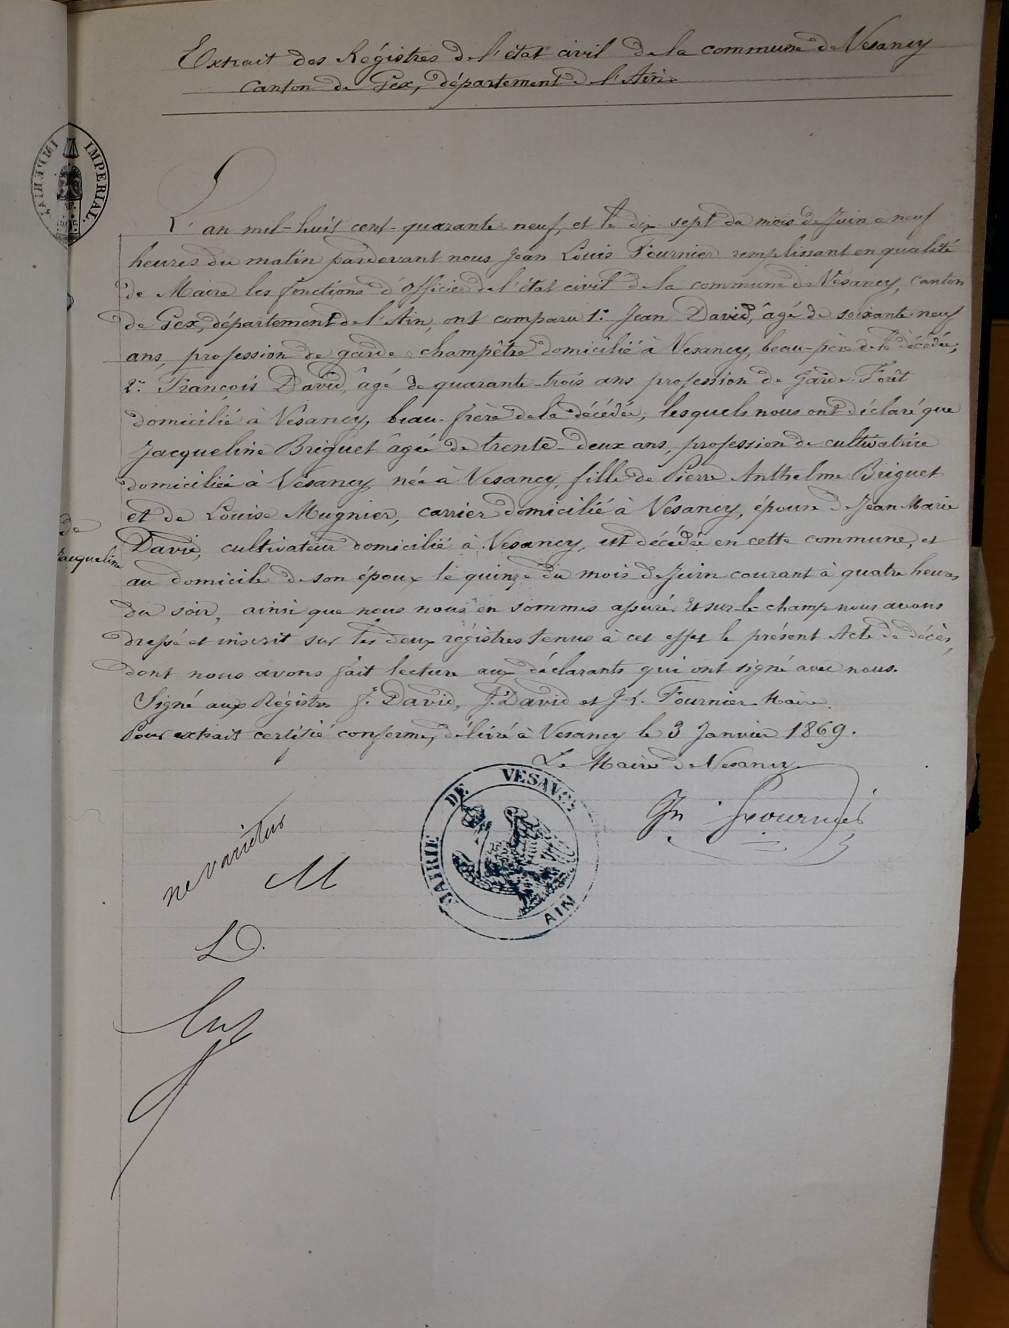 Extrait des Régistres de l'état civil de la commune de Vesancy
Canton de Gex, département de l'Ain
IMPERIAL
L'an mil-huit cent-quarante neuf, et le dix sept du mois de Juin a neuf
heures du matin pardevant nous Jean Louis Fournier remplissant en qualité
de Maire les fonctions d'officier de l'état civil de la commune de Vesancy, canton
de Gex, département de l'Ain, ont comparu 1° Jean David, âgé de soixante neuf
ans, profession de garde champêtre domicilié à Vesancy, beau-père de la décédée;
2° François David, âgé de quarante-trois ans profession de Garde Forêt
domicilié à Vesancy, beau-frère de la décédée; lesquels nous ont déclaré que
Jacqueline Briguet âgée de trente-deux ans, profession de cultivatrice
domiciliée à Vesancy, née à Vesancy fille de Pierre Anthelme Briguet
et de Louise Mugnier, carrier domicilié à Vesancy, épouse de Jean Marie
David, cultivateur domicilié à Vesancy, est décédée en cette commune, et
au domicile de son époux le quinze du mois de Juin courant à quatre heures
du soir, ainsi que nous nous en sommes assuré. Et sur-le-champ nous avons
dressé et inscrit sur les deux régistres tenus à cet effet le présent Acte de décès,
dont nous avons fait lecture aux déclarants qui ont signé avec nous.
Signé aux Régistres J. David, F. David et J. L. Fournier Maire.
Pour extrait certifié conforme, délivré à Vesancy le 3 Janvier 1869.
Le Maire de Vesancy
Jn Fournier
MAIRIE DE VESANCY
AIN
de
Jacqueline
ne varietur
M
LD.